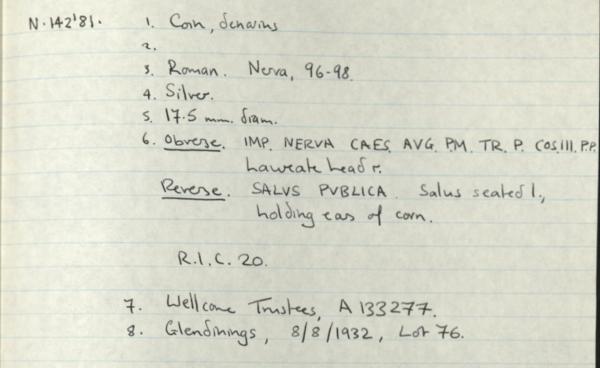 N.142'81. 1. Coin, denarius
2.
3. Roman. Nerva, 96-98.
4. Silver.
5. 17.5 mm. diam.
6. Obverse. IMP. NERVA CAES. AVG. P.M. TR. P. COS.III. P.P.
Laureate head r.
Reverse. SALVS PVBLICA. Salus seated l.,
holding ears of corn.
R.I.C. 20.
7. Wellcome Trustees, A 133277.
8. Glendinings, 8/8/1932, Lot 76.